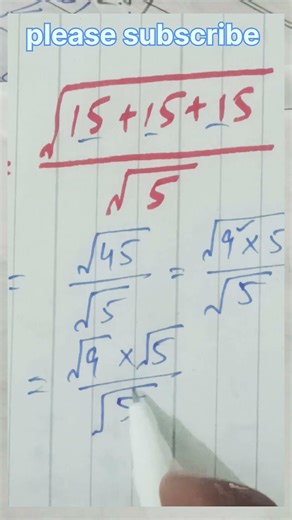 please subscribe
√(15+15+15) / √5
= √45 / √5 = √(9×5) / √5
= √9 × √5 / √5